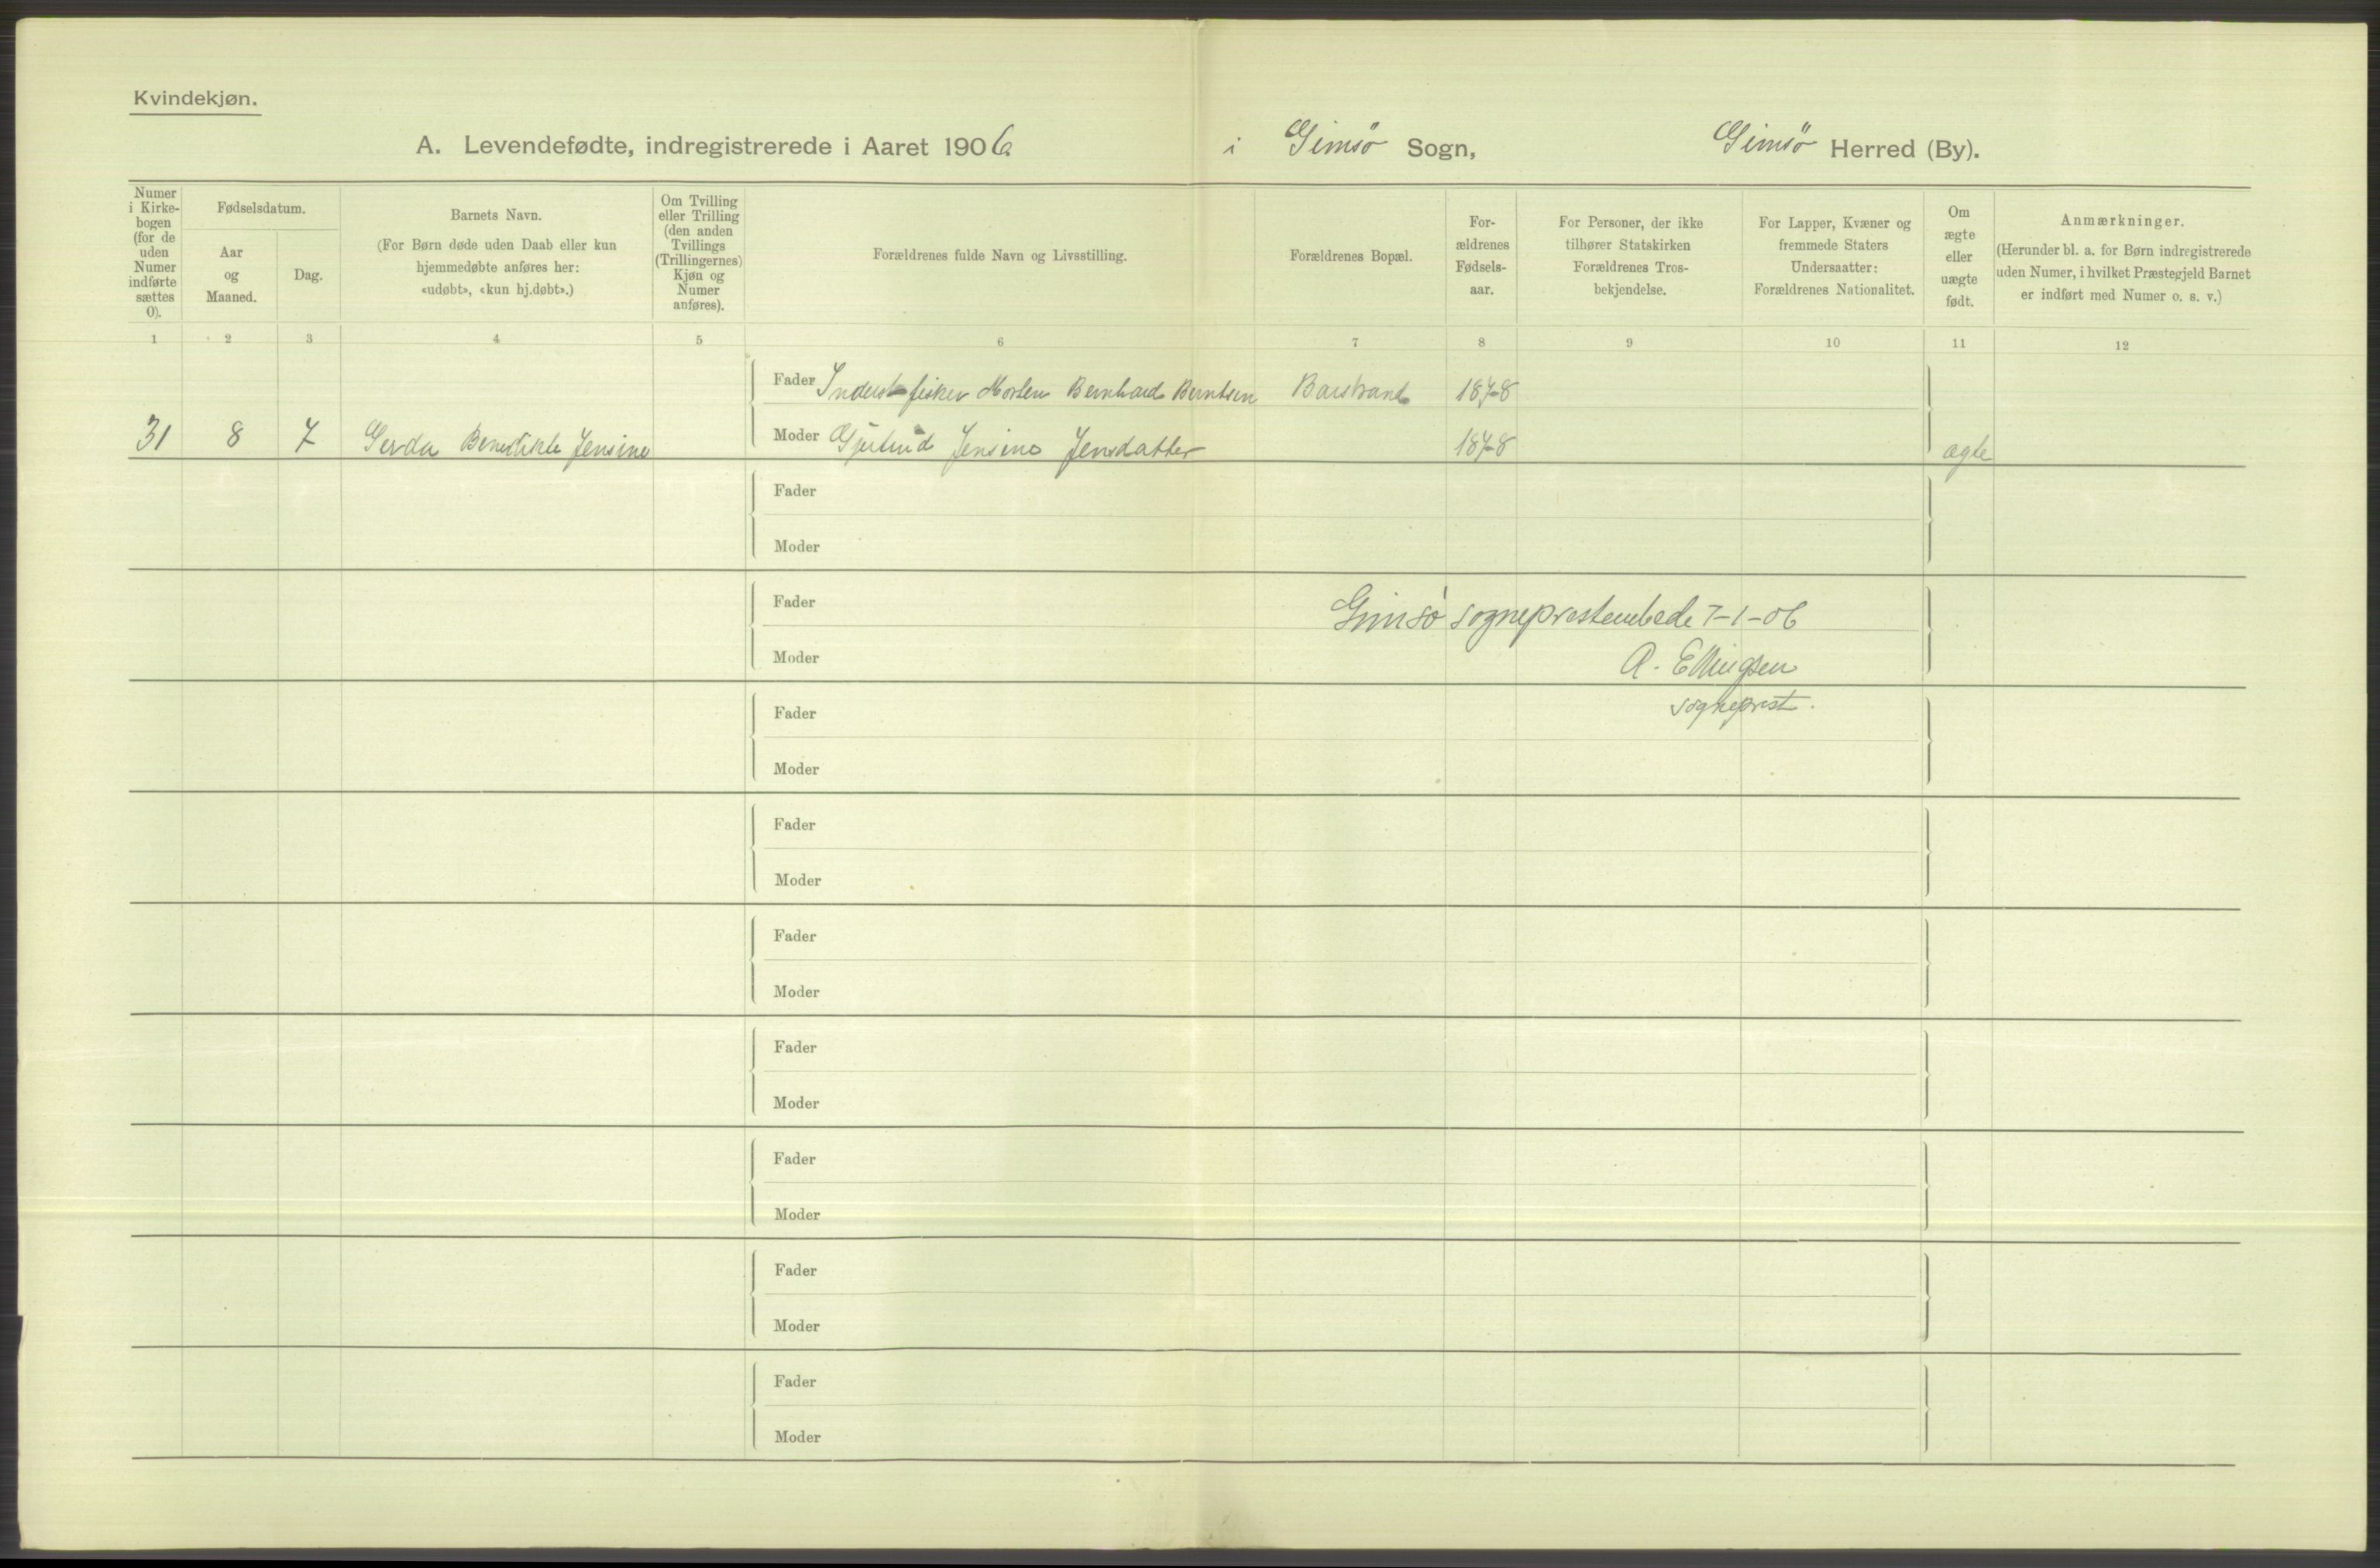 Kvindekjøn.
A. Levendefødte, indregistrerede i Aaret 1906 i Gimsö Sogn, Gimsö Herred (By).
Numer i Kirke-bogen (for de uden Numer indførte sættes 0).
Fødselsdatum.
Aar og Maaned.
Dag.
Barnets Navn.
(For Børn døde uden Daab eller kun hjemmedøbte anføres her: «udøbt», «kun hj.døbt».)
Om Tvilling eller Trilling (den anden Tvillings (Trillingernes) Kjøn og Numer anføres).
Forældrenes fulde Navn og Livsstilling.
Forældrenes Bopæl.
For-ældrenes Fødsels-aar.
For Personer, der ikke tilhører Statskirken Forældrenes Tros-bekjendelse.
For Lapper, Kvæner og fremmede Staters Undersaatter: Forældrenes Nationalitet.
Om ægte eller uægte født.
Anmærkninger.
(Herunder bl. a. for Børn indregistrerede uden Numer, i hvilket Præstegjeld Barnet er indført med Numer o. s. v.)
1 2 3 4 5 6 7 8 9 10 11 12
Fader Inderst fisker Morten Bernhard Berntsen Barstrand 1878
31 8 7 Gerda Benedikte Jensine Moder Gjertrud Jensine Jensdatter 1878 ægte
Fader
Moder
Fader
Gimsö sogneprestembede 7-1-06
Moder
A. Ellingsen
Fader
sogneprest.
Moder
Fader
Moder
Fader
Moder
Fader
Moder
Fader
Moder
Fader
Moder
Fader
Moder